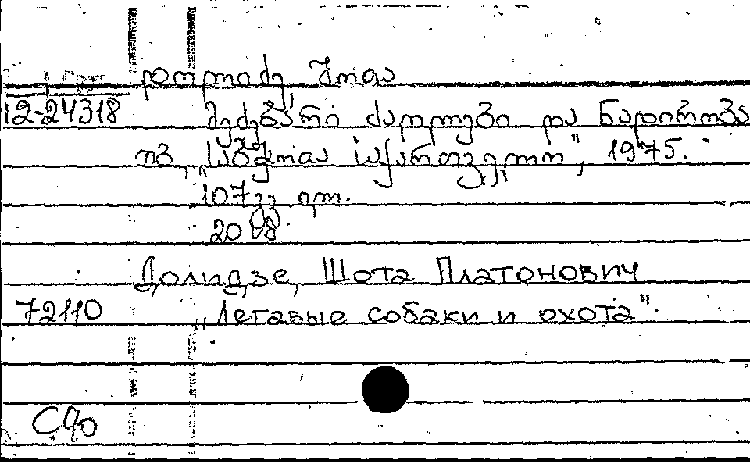 დოლიძე, შოთა
12-24318 მეძებარი ძაღლები და ნადირობა
თბ., „საბჭოთა საქართველო", 1975.
107 გვ.
Долидзе, Шота Платонович
72110 „Легавые собаки и охота".